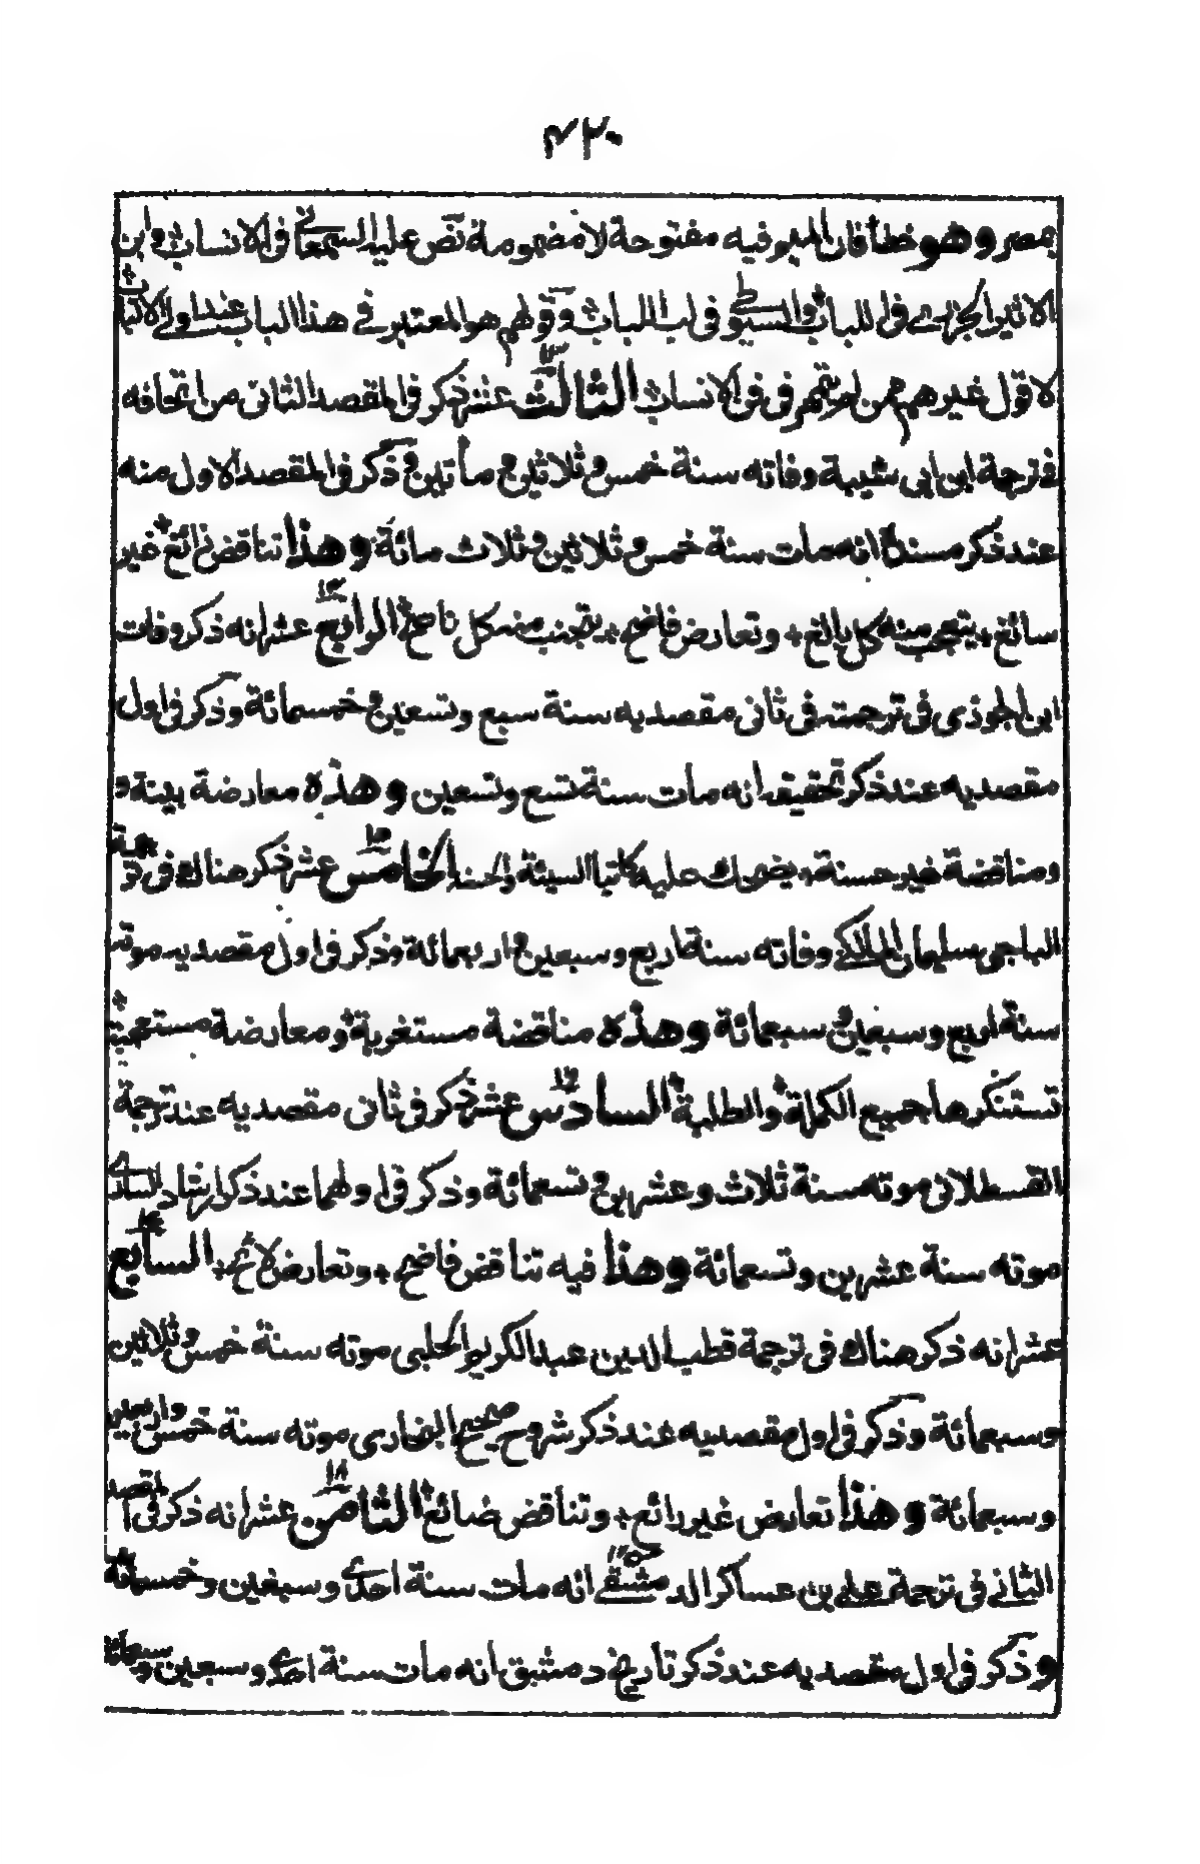 ٤٢٠
بمصر وهو خطأ فان الميم فيه مفتوحة لا مضمومة نص عليه السمعاني في الانساب وابن
الاثير الجزري في اللباب والسيوطي في لب اللباب وقولهم هو المعتبر في هذا الباب عند اولي الالباب
لا قول غيرهم ممن لم يتمهر في فن الانساب الثالث عشر ذكر في المقصد الثاني من اتحافه
في ترجمة ابن ابي شيبة وفاته سنة خمس وثلاثين ومأتين وذكر في المقصد الاول منه
عند ذكر مسنده انه مات سنة خمس وثلاثين وثلاث مائة وهذا تناقض زائغ غير
سائغ + يتعجب منه كل بالغ + وتعارض فاضح + يتجنب منه كل ناصح الرابع عشر انه ذكر وفات
ابن الجوزي في ترجمته في ثاني مقصديه سنة سبع وتسعين وخمسمائة وذكر في اول
مقصديه عند ذكر تحقيقه انه مات سنة تسع وتسعين وهذه معارضة بينة و
ومناقضة غير حسنة + يضحك عليه كاتبا السيئة والحسنة الخامس عشر ذكر هناك في ترجمة
الباجي سليمان المالكي وفاته سنة اربع وسبعين واربعمائة وذكر في اول مقصديه موته
سنة اربع وسبعين وسبعمائة وهذه مناقضة مستغربة ومعارضة مستعجبة
تستنكرها جميع الكملة والطلبة السادس عشر ذكر في ثاني مقصديه عند ترجمة
القسطلاني موته سنة ثلاث وعشرين وتسعمائة وذكر في اولهما عند ذكر ارشاد الساري
موته سنة عشرين وتسعمائة وهذا فيه تناقض فاضح + وتعارض لائح + السابع
عشر انه ذكر هناك في ترجمة قطب الدين عبد الكريم الحلبي موته سنة خمس وثلاثين
وسبعمائة وذكر في اول مقصديه عند ذكر شروح صحيح البخاري موته سنة خمس واربعين
وسبعمائة وهذا تعارض غير رائع + وتناقض ضائع الثامن عشر انه ذكر في المقصد
الثاني في ترجمة علي بن عساكر الدمشقي انه مات سنة احدى وسبعين وخمسمائة
وذكر في اول مقصديه عند ذكر تاريخ دمشق انه مات سنة احدى وسبعين وسبعمائة